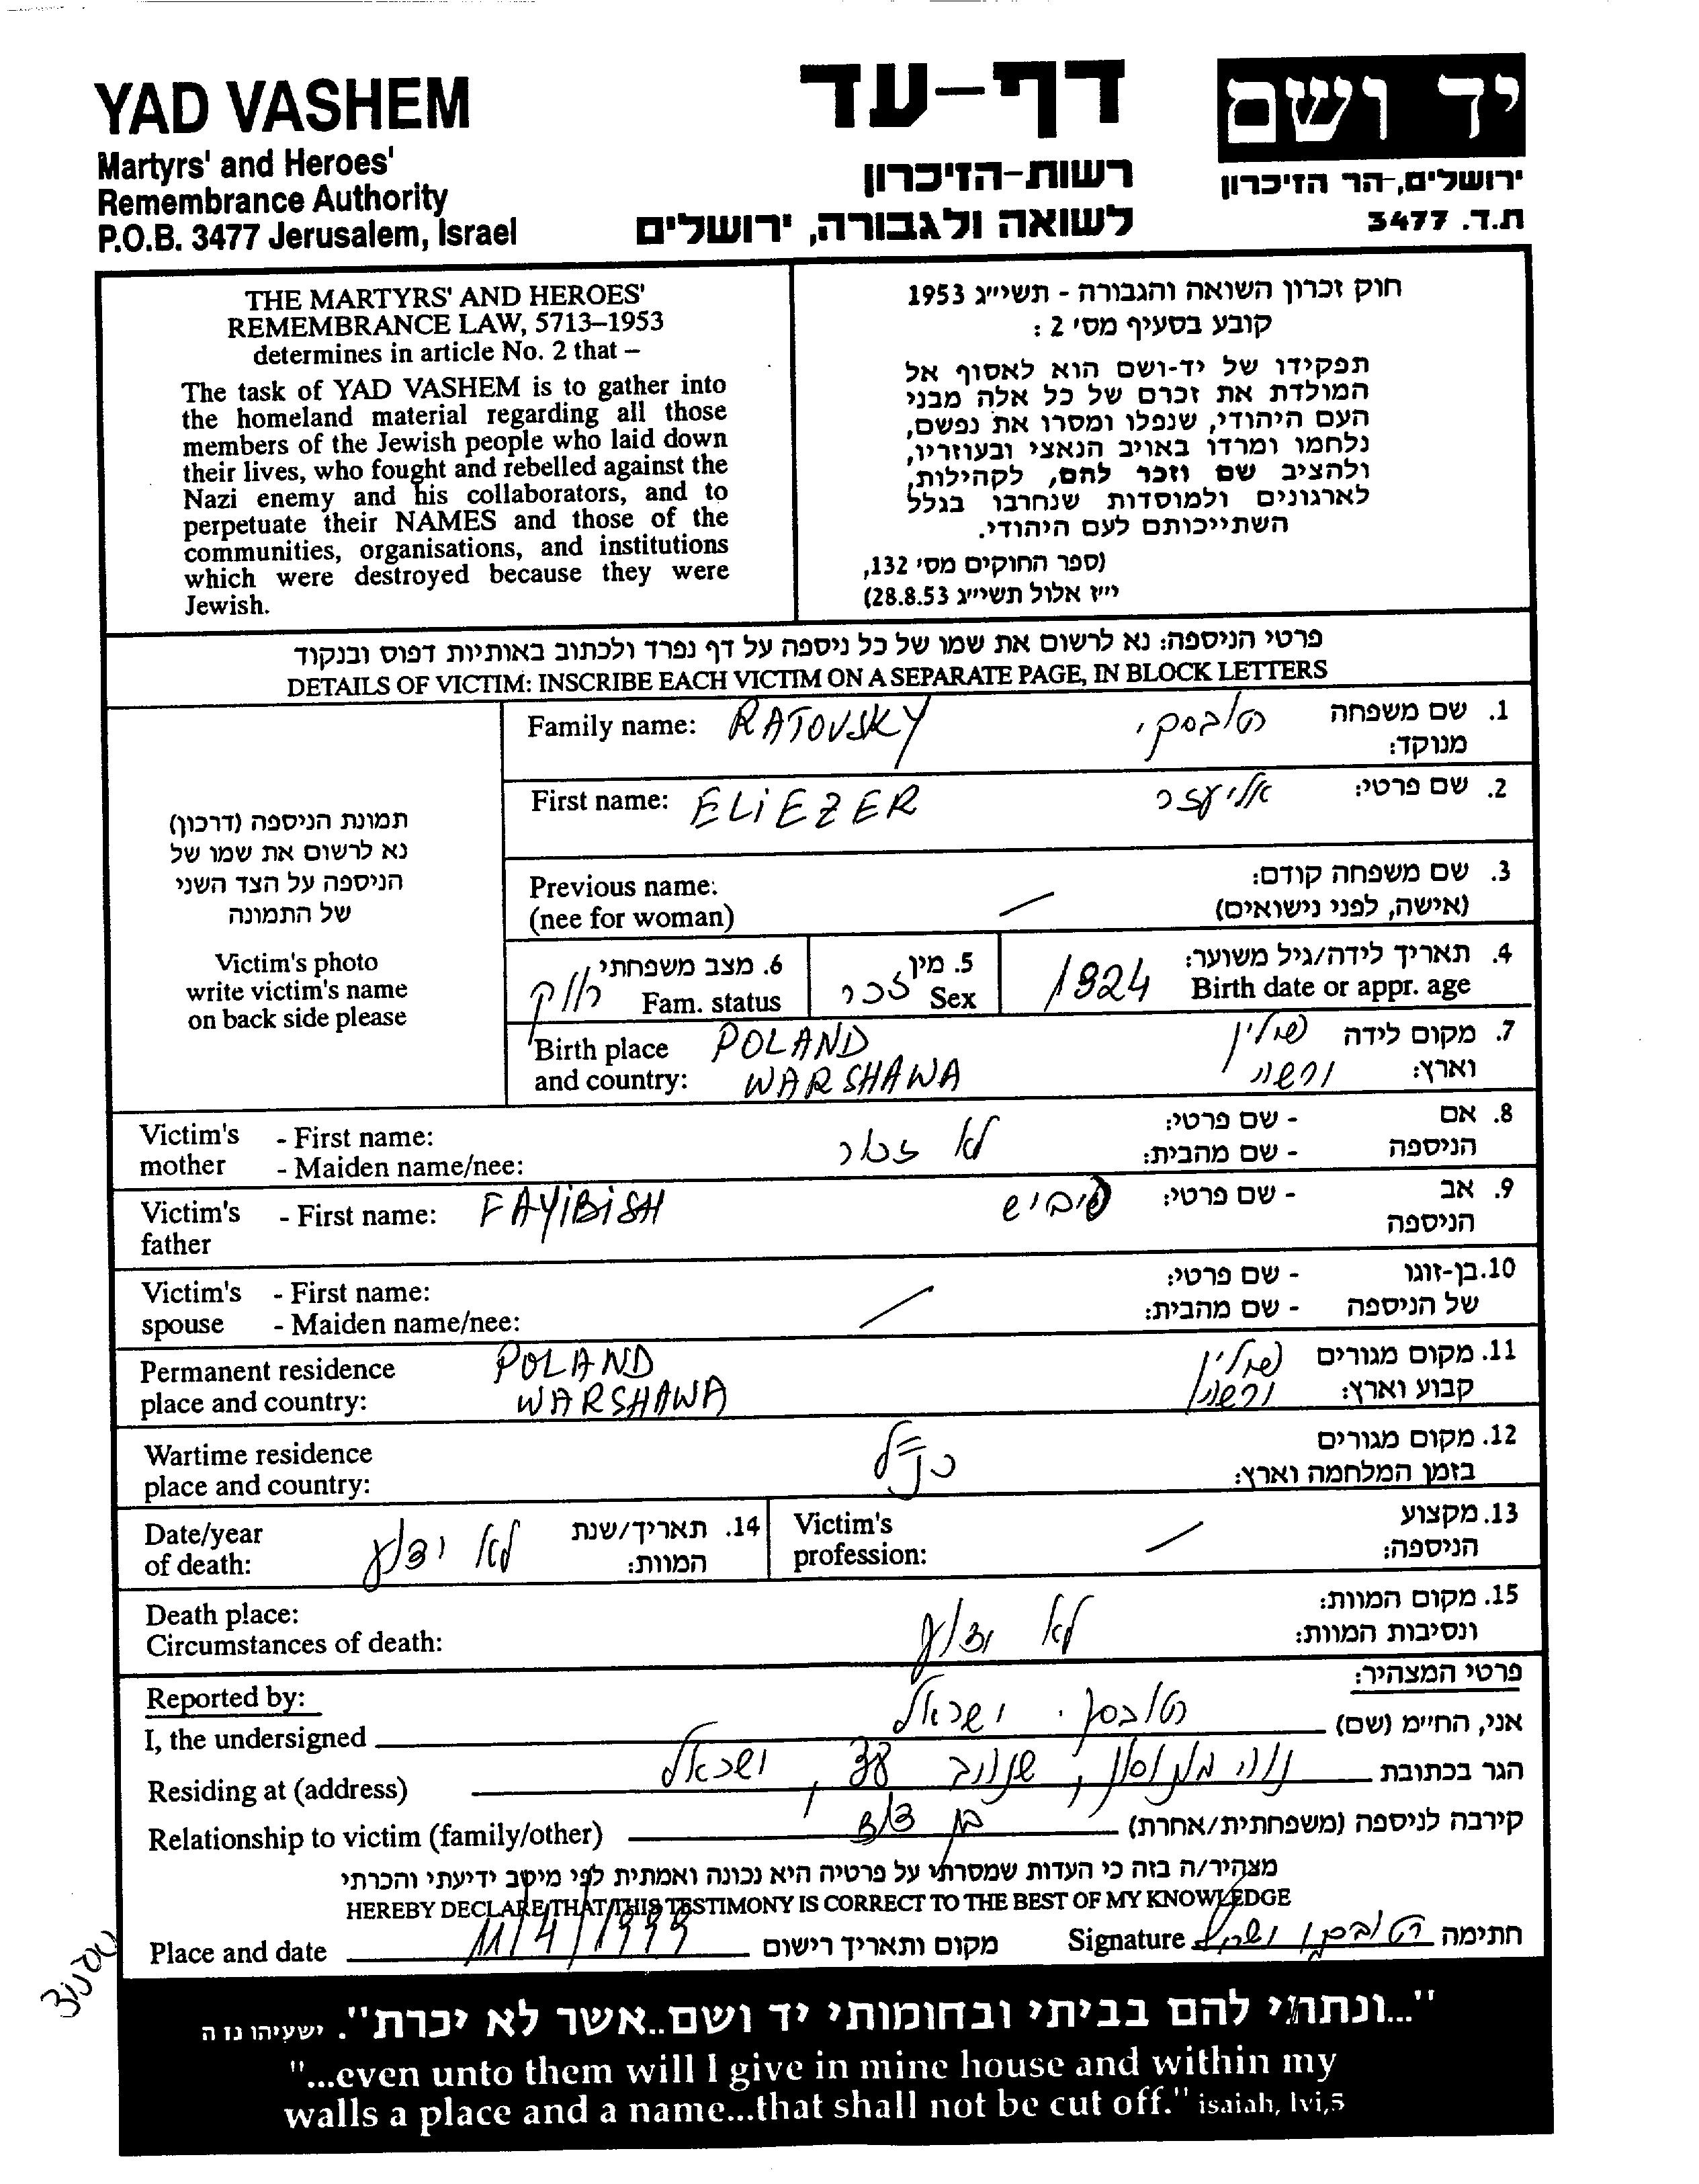 YAD VASHEM
Martyrs' and Heroes'
Remembrance Authority
P.O.B. 3477 Jerusalem, Israel
דף-עד
רשות-הזיכרון
לשואה ולגבורה, ירושלים
יד ושם
ירושלים,-הר הזיכרון
ת.ד. 3477
THE MARTYRS' AND HEROES'
REMEMBRANCE LAW, 5713–1953
determines in article No. 2 that –
The task of YAD VASHEM is to gather into
the homeland material regarding all those
members of the Jewish people who laid down
their lives, who fought and rebelled against the
Nazi enemy and his collaborators, and to
perpetuate their NAMES and those of the
communities, organisations, and institutions
which were destroyed because they were
Jewish.
חוק זכרון השואה והגבורה - תשי״ג 1953
קובע בסעיף מס׳ 2 :
תפקידו של יד-ושם הוא לאסוף אל
המולדת את זכרם של כל אלה מבני
העם היהודי, שנפלו ומסרו את נפשם,
נלחמו ומרדו באויב הנאצי ובעוזריו,
ולהציב שם וזכר להם, לקהילות,
לארגונים ולמוסדות שנחרבו בגלל
השתייכותם לעם היהודי.
(ספר החוקים מס׳ 132,
י״ז אלול תשי״ג 28.8.53)
פרטי הניספה: נא לרשום את שמו של כל ניספה על דף נפרד ולכתוב באותיות דפוס ובנקוד
DETAILS OF VICTIM: INSCRIBE EACH VICTIM ON A SEPARATE PAGE, IN BLOCK LETTERS
תמונת הניספה (דרכון)
נא לרשום את שמו של
הניספה על הצד השני
של התמונה
Victim's photo
write victim's name
on back side please
Family name: RATOVSKY רטובסקי 1. שם משפחה
מנוקד:
First name: ELIEZER אליעזר 2. שם פרטי:
Previous name: 3. שם משפחה קודם:
(nee for woman) (אישה, לפני נישואים)
6. מצב משפחתי רווק Fam. status
5. מין זכר Sex
1924 4. תאריך לידה/גיל משוער:
Birth date or appr. age
Birth place POLAND פולין 7. מקום לידה
and country: WARSHAWA ורשה וארץ:
Victim's - First name: לא זכור - שם פרטי: 8. אם
mother - Maiden name/nee: - שם מהבית: הניספה
Victim's - First name: FAYIBISH פייביש - שם פרטי: 9. אב
father הניספה
Victim's - First name: - שם פרטי: 10. בן-זוגו
spouse - Maiden name/nee: - שם מהבית: של הניספה
Permanent residence POLAND פולין 11. מקום מגורים
place and country: WARSHAWA ורשה קבוע וארץ:
Wartime residence כנ״ל 12. מקום מגורים
place and country: בזמן המלחמה וארץ:
Date/year לא ידוע 14. תאריך/שנת
of death: המוות:
Victim's 13. מקצוע
profession: הניספה:
Death place: 15. מקום המוות:
Circumstances of death: לא ידוע ונסיבות המוות:
Reported by: פרטי המצהיר:
I, the undersigned רטובסקי ישראל אני, החיימ (שם)
Residing at (address) ישראל הגר בכתובת
Relationship to victim (family/other) בן דוד קירבה לניספה (משפחתית/אחרת)
מצהיר/ה בזה כי העדות שמסרתי על פרטיה היא נכונה ואמתית לפי מיטב ידיעתי והכרתי
HEREBY DECLARE THAT THIS TESTIMONY IS CORRECT TO THE BEST OF MY KNOWLEDGE
Place and date 11/4/1999 מקום ותאריך רישום Signature רטובסקי ישראל חתימה
"...ונתתי להם בביתי ובחומותי יד ושם..אשר לא יכרת". ישעיהו נו ה
"...even unto them will I give in mine house and within my
walls a place and a name...that shall not be cut off." isaiah, lvi,5